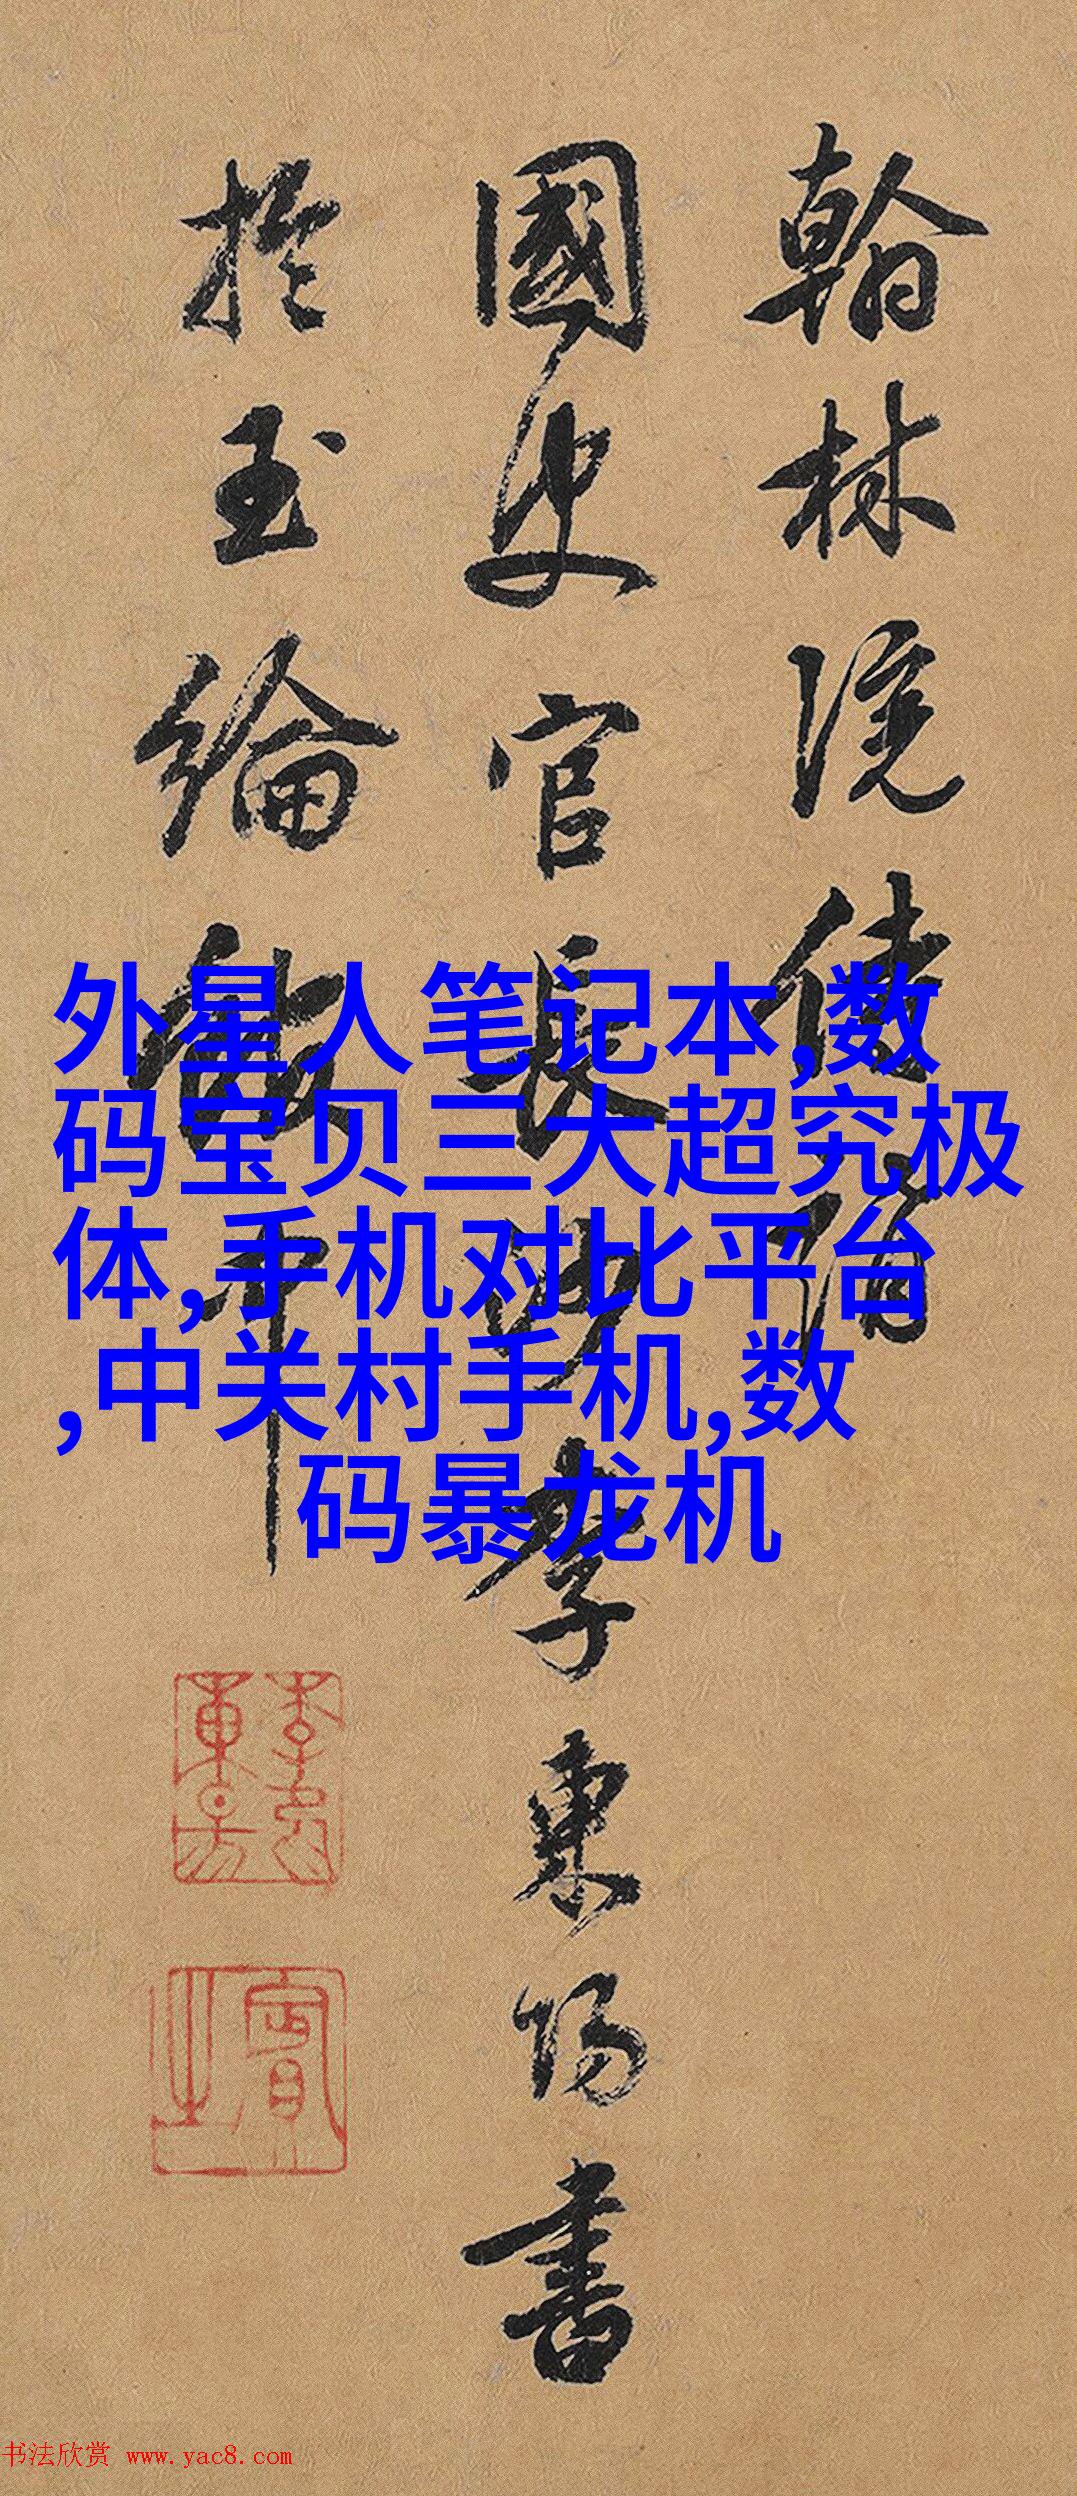 翰林院侍講
國史官長沙李東陽書
於玉綸軒中
外星人笔记本,数
码宝贝三大超究极
体,手机对比平台
,中关村手机,数
码暴龙机
书法欣赏 www.yac8.com